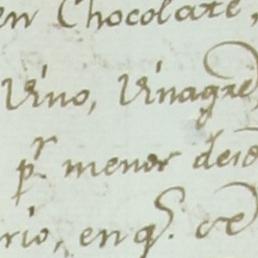 en Chocolate,
Vino, Vinagre
pr. menor
rio, en q.